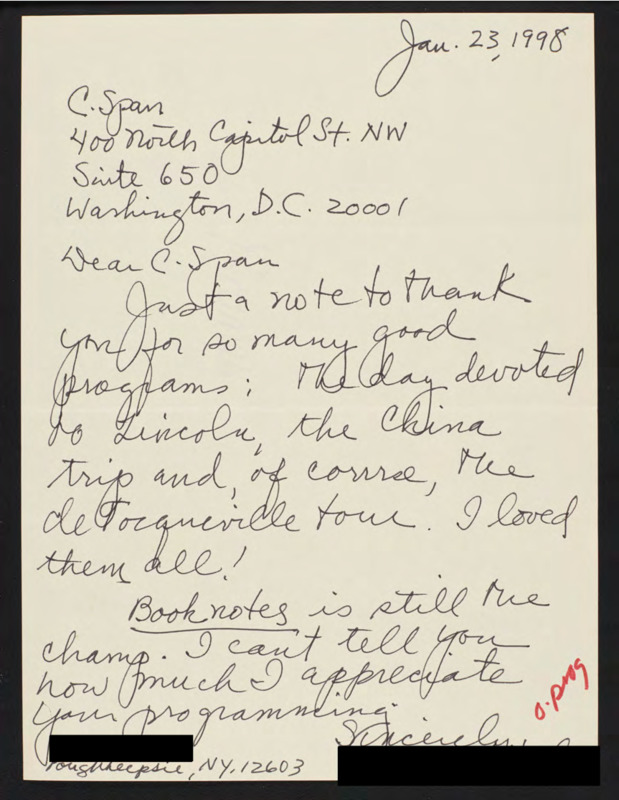 Jan. 23, 1998
C. Span
400 North Capitol St. NW
Suite 650
Washington, D.C. 20001
Dear C. Span
Just a note to thank
you for so many good
programs; The day devoted
to Lincoln, the China
trip and, of course, the
deTocqueville tour. I loved
them all!
Booknotes is still the
champ. I can't tell you
how much I appreciate
your programming.
Sincerely,
o.prog
Poughkeepsie, NY. 12603